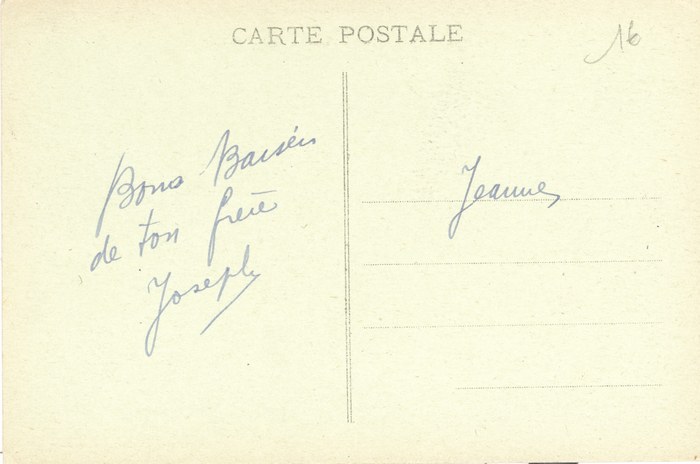 CARTE POSTALE
16
Bons Baisers
de ton frère
Joseph
Jeanne